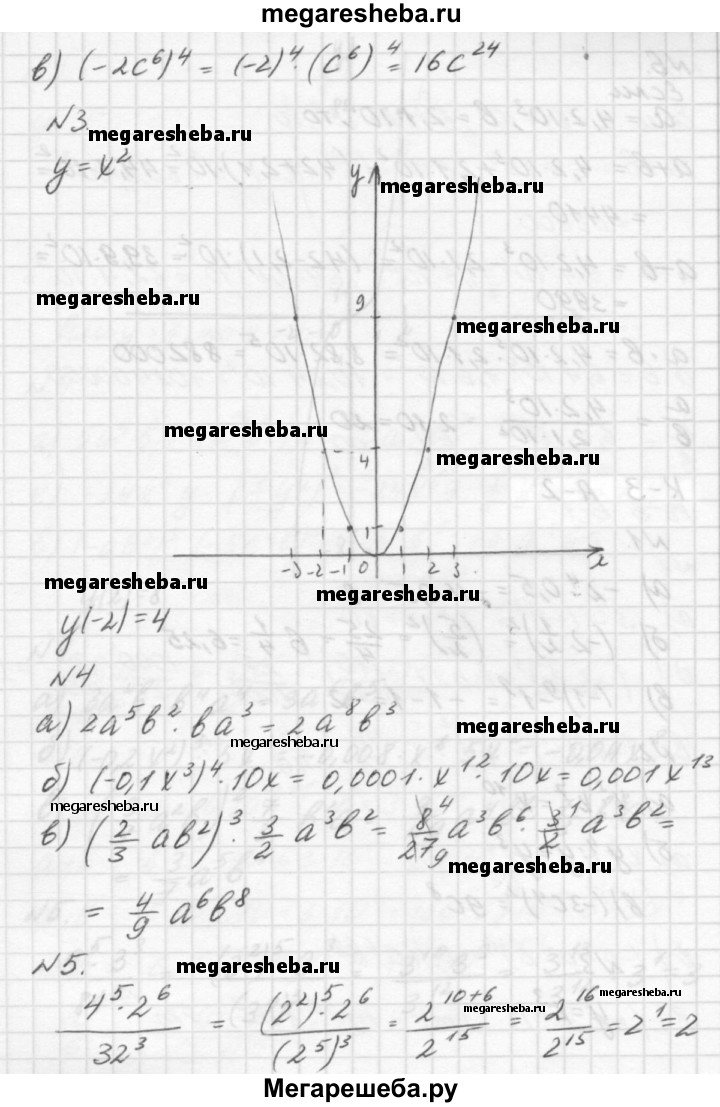 megaresheba.ru
в) (-2c⁶)⁴ = (-2)⁴·(c⁶)⁴ = 16c²⁴
N3.
megaresheba.ru
y = x²
y
megaresheba.ru
megaresheba.ru
9
megaresheba.ru
megaresheba.ru
4
megaresheba.ru
1
-3 -2 -1 0 1 2 3 x
megaresheba.ru
megaresheba.ru
y(-2) = 4
N4
а) 2a⁵b²·ba³ = 2a⁸b³
megaresheba.ru
megaresheba.ru
б) (-0,1x³)⁴·10x = 0,0001·x¹²·10x = 0,001x¹³
megaresheba.ru
в) (2/3 ab²)³·3/2 a³b² = 8⁴/27₉ a³b⁶·3¹/2 a³b² =
megaresheba.ru
= 4/9 a⁶b⁸
N5.
megaresheba.ru
4⁵·2⁶/32³ = (2²)⁵·2⁶/(2⁵)³ = 2¹⁰⁺⁶/2¹⁵ = 2¹⁶/2¹⁵ = 2¹ = 2
megaresheba.ru
megaresheba.ru
Мегарешеба.ру